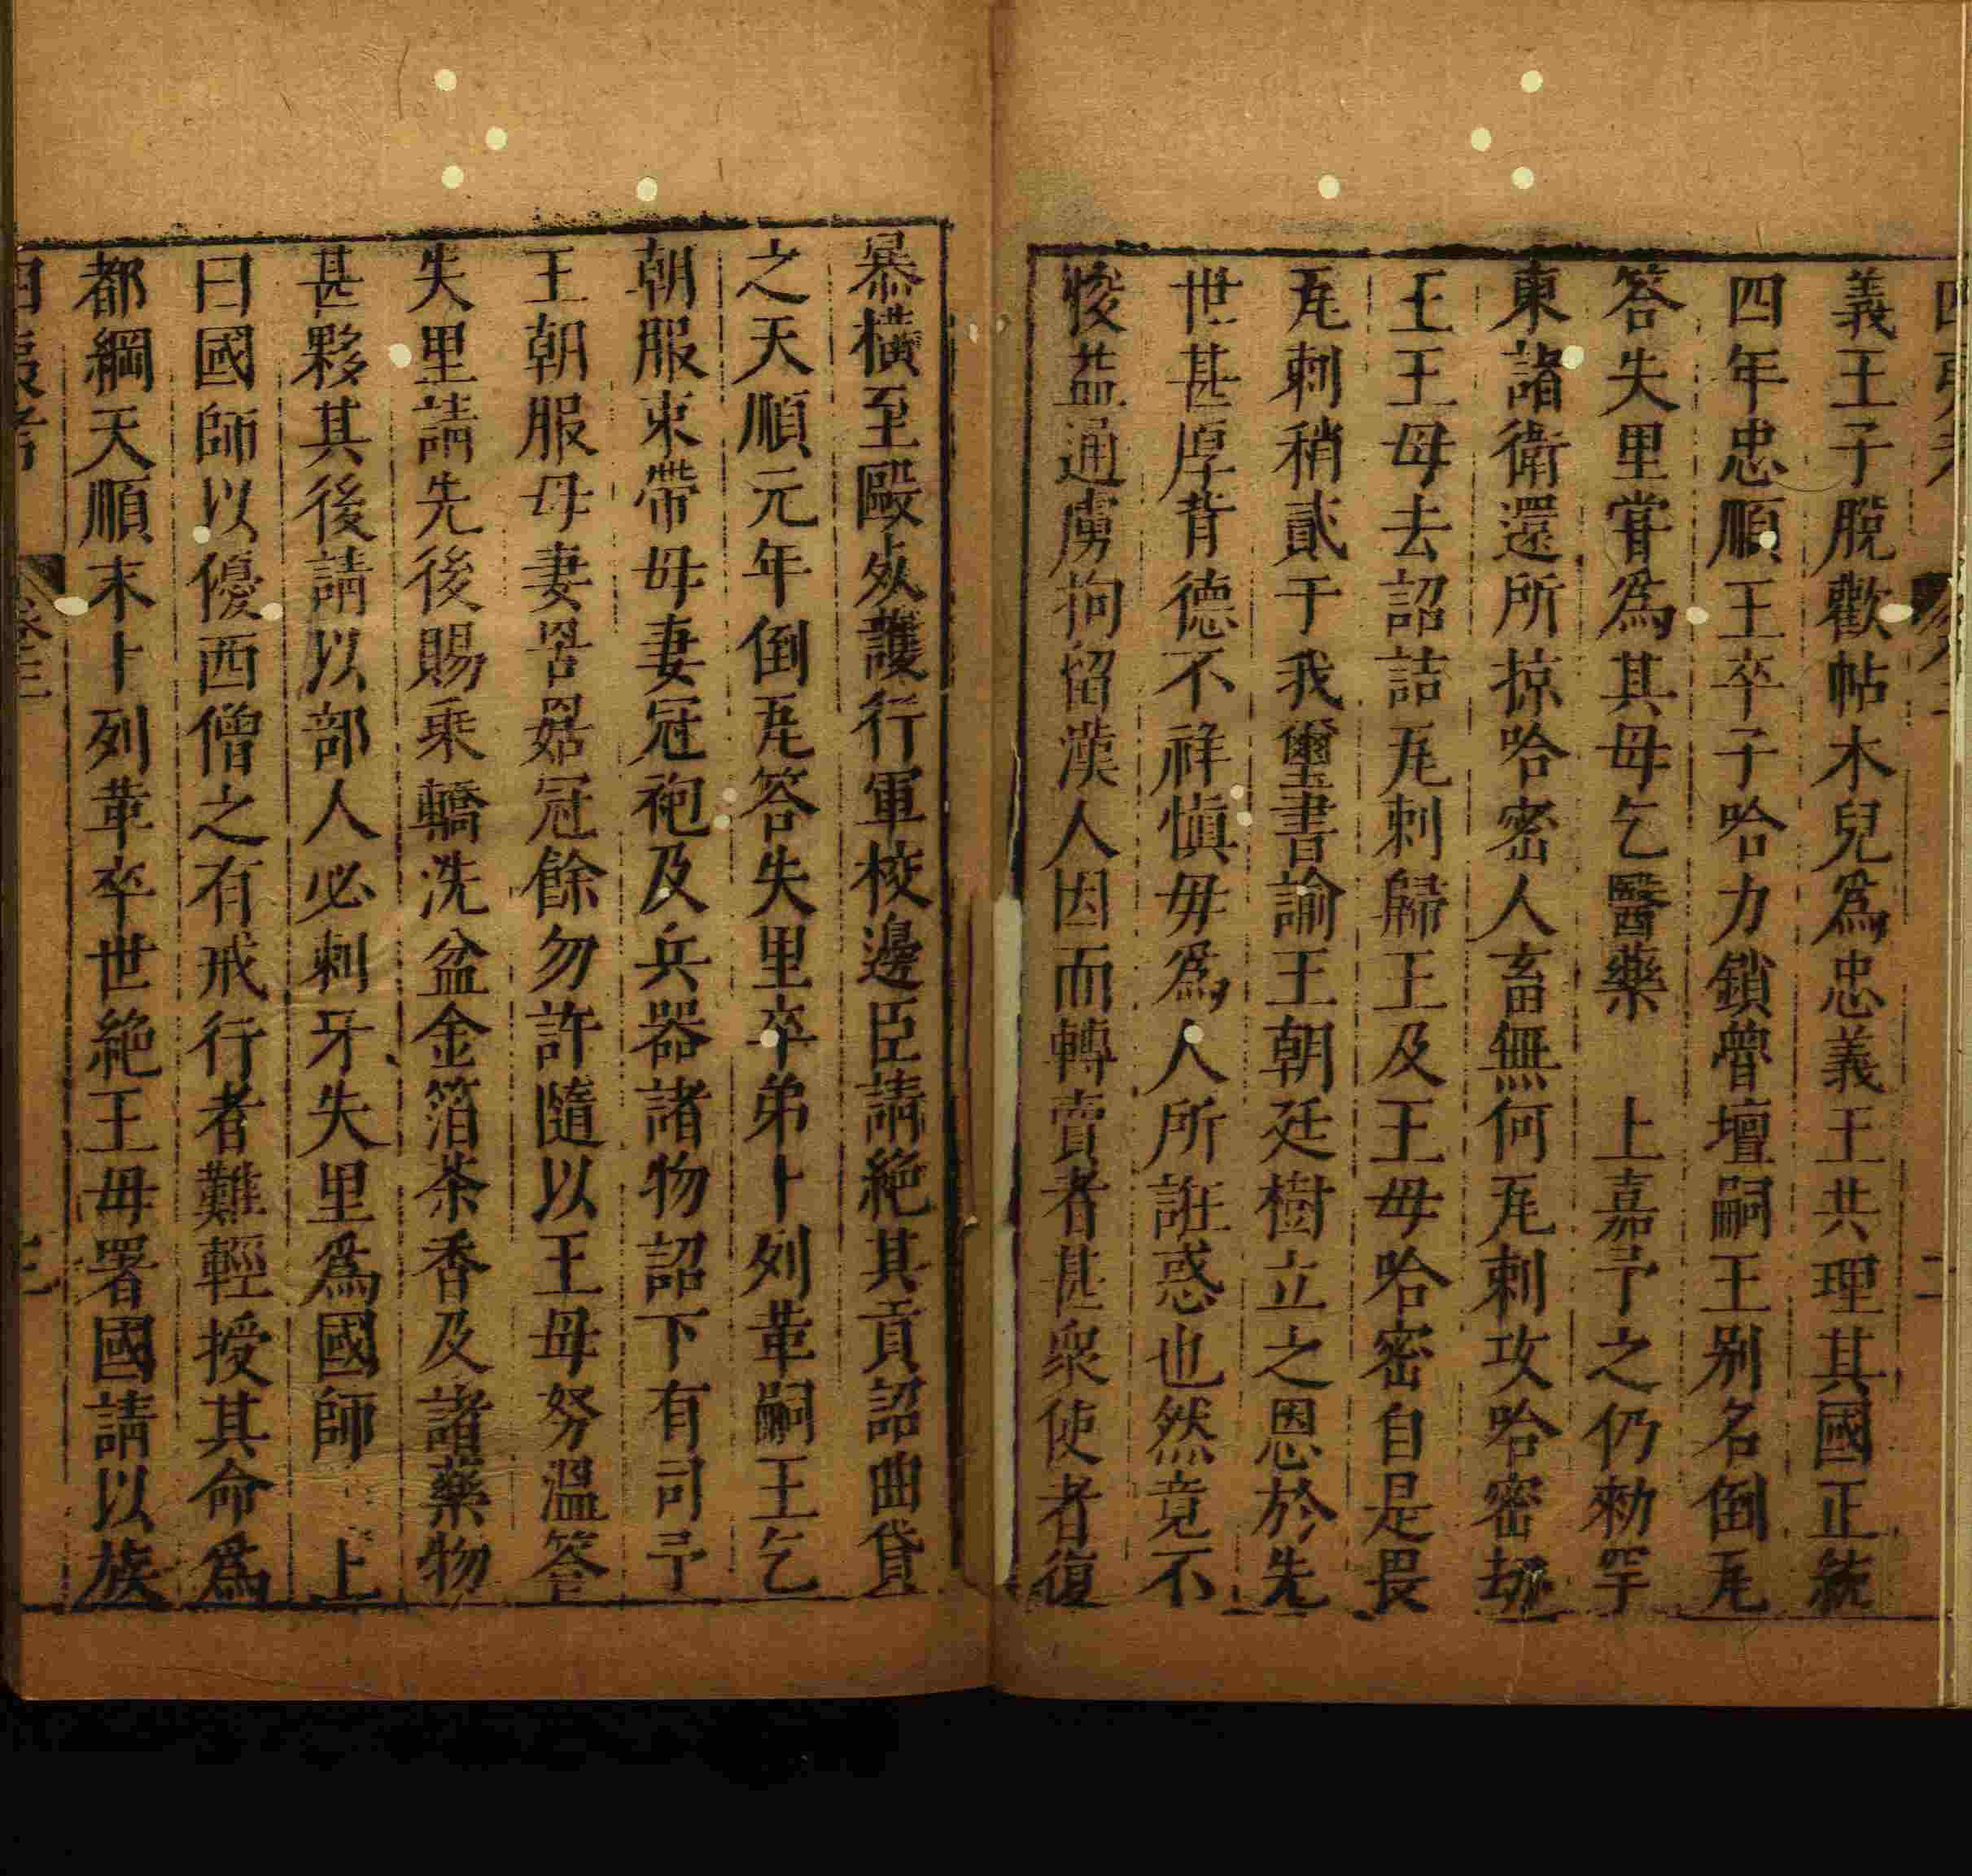 義王子脫歡帖木兒為忠義王共理其國正統
四年忠順王卒子哈力鎖魯壇嗣王別名倒瓦
答失里嘗為其母乞醫藥　上嘉予之仍勑罕
東諸衛還所掠哈密人畜無何瓦剌攻哈密
王王母去詔詰瓦剌歸王及王母哈密自是畏
瓦剌稍貳于我璽書諭王朝廷樹立之恩於先
世甚厚背德不祥慎毋為人所誑惑也然竟不
悛益通虜拘留漢人因而轉賣者甚衆使者復
暴橫至毆死護行軍校邊臣請絕其貢詔曲貸
之天順元年倒瓦答失里卒弟卜列革嗣王乞
朝服束帶母妻冠袍及兵器諸物詔下有司予
王朝服母妻罟罟冠餘勿許隨以王母努溫答
失里請先後賜乘轎洗盆金箔茶香及諸藥物
甚夥其後請以部人必剌牙失里為國師　上
曰國師以優西僧之有戒行者難輕授其命為
都綱天順末卜列革卒世絕王母署國請以族
四夷考　卷三　三